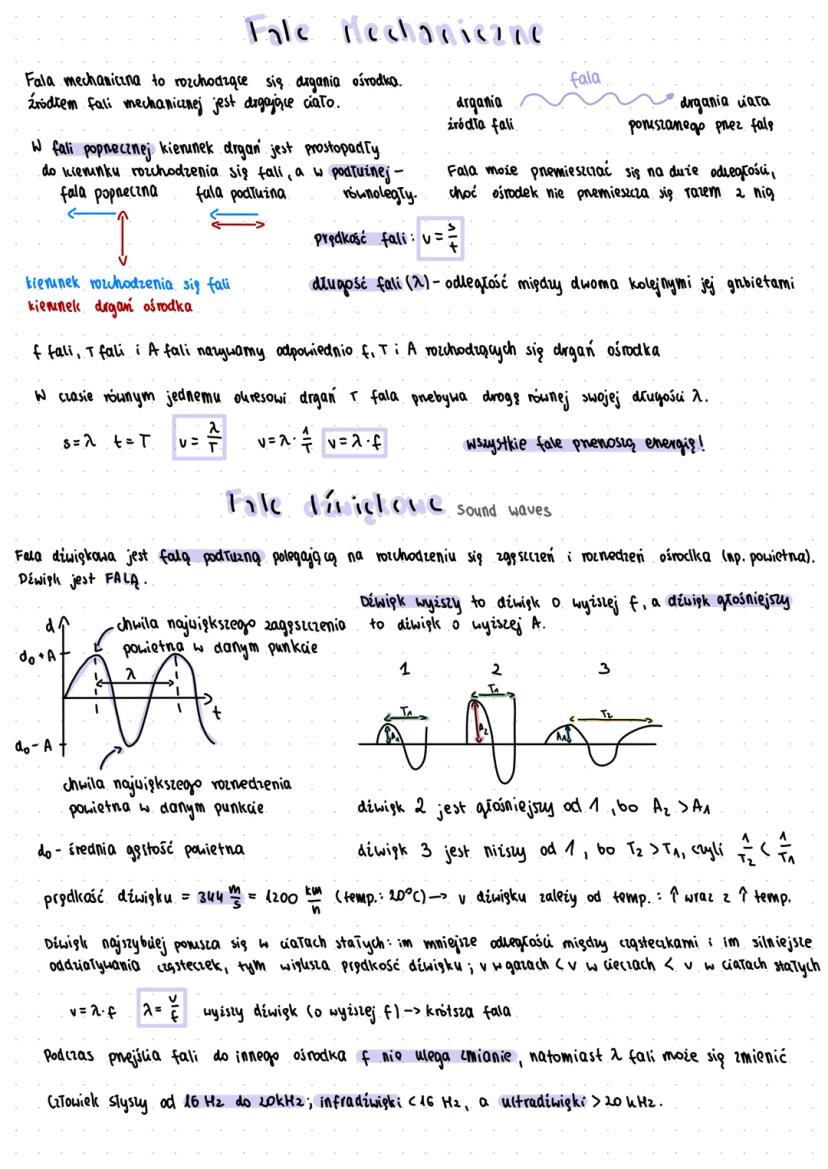 Fale Mechaniczne
Fala mechaniczna to rozchodzące się drgania ośrodka.
źródłem fali mechanicznej jest drgające ciało.
fala
drgania
źródła fali
drgania ciała
poruszanego przez falę
W fali poprzecznej kierunek drgań jest prostopadły
do kierunku rozchodzenia się fali, a w podłużnej -
równoległy.
fala poprzeczna fala podłużna
Fala może przemieszczać się na duże odległości,
choć ośrodek nie przemieszcza się razem z nią
kierunek rozchodzenia się fali
kierunek drgań ośrodka
prędkość fali: v = s/t
długość fali (λ) - odległość między dwoma kolejnymi jej grzbietami
f fali, T fali i A fali nazywamy odpowiednio f, T i A rozchodzących się drgań ośrodka
W czasie równym jednemu okresowi drgań T fala przebywa drogę równej swojej długości λ.
s = λ t = T v = λ/T v = λ · 1/T v = λ · f wszystkie fale przenoszą energię!
Fale dźwiękowe sound waves
Fala dźwiękowa jest falą podłużną polegającą na rozchodzeniu się zgęszczeń i rozrzedzeń ośrodka (np. powietrza).
Dźwięk jest FALĄ.
Dźwięk wyższy to dźwięk o wyższej f, a dźwięk głośniejszy
to dźwięk o wyższej A.
d
chwila największego zagęszczenia
powietrza w danym punkcie
d₀ + A
λ
t
d₀ - A
chwila największego rozrzedzenia
powietrza w danym punkcie
1 2 3
T₁ T₁ T₂
A₁ A₂ A₁
dźwięk 2 jest głośniejszy od 1, bo A₂ > A₁
d₀ - średnia gęstość powietrza
dźwięk 3 jest niższy od 1, bo T₂ > T₁, czyli 1/T₂ < 1/T₁
prędkość dźwięku = 344 m/s = 1200 km/h (temp.: 20°C) -> v dźwięku zależy od temp. : ↑ wraz z ↑ temp.
Dźwięk najszybciej porusza się w ciałach stałych: im mniejsze odległości między cząsteczkami i im silniejsze
oddziaływania cząsteczek, tym większa prędkość dźwięku; v w gazach < v w cieczach < v w ciałach stałych
v = λ · f λ = v/f wyższy dźwięk (o wyższej f) -> krótsza fala
Podczas przejścia fali do innego ośrodka f nie ulega zmianie, natomiast λ fali może się zmienić
Człowiek słyszy od 16 Hz do 20kHz; infradźwięki < 16 Hz, a ultradźwięki > 20 kHz.